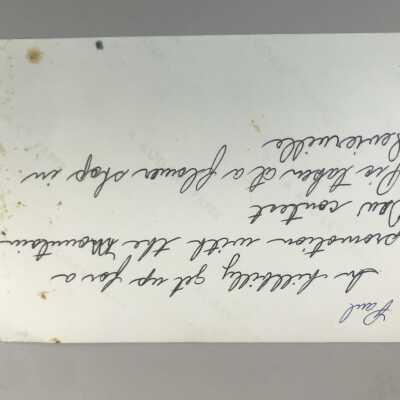 Paul
In hillbilly get up for a
promotion with the Mountain
Dew contest
Pic taken at a flower shop in
Sevierville